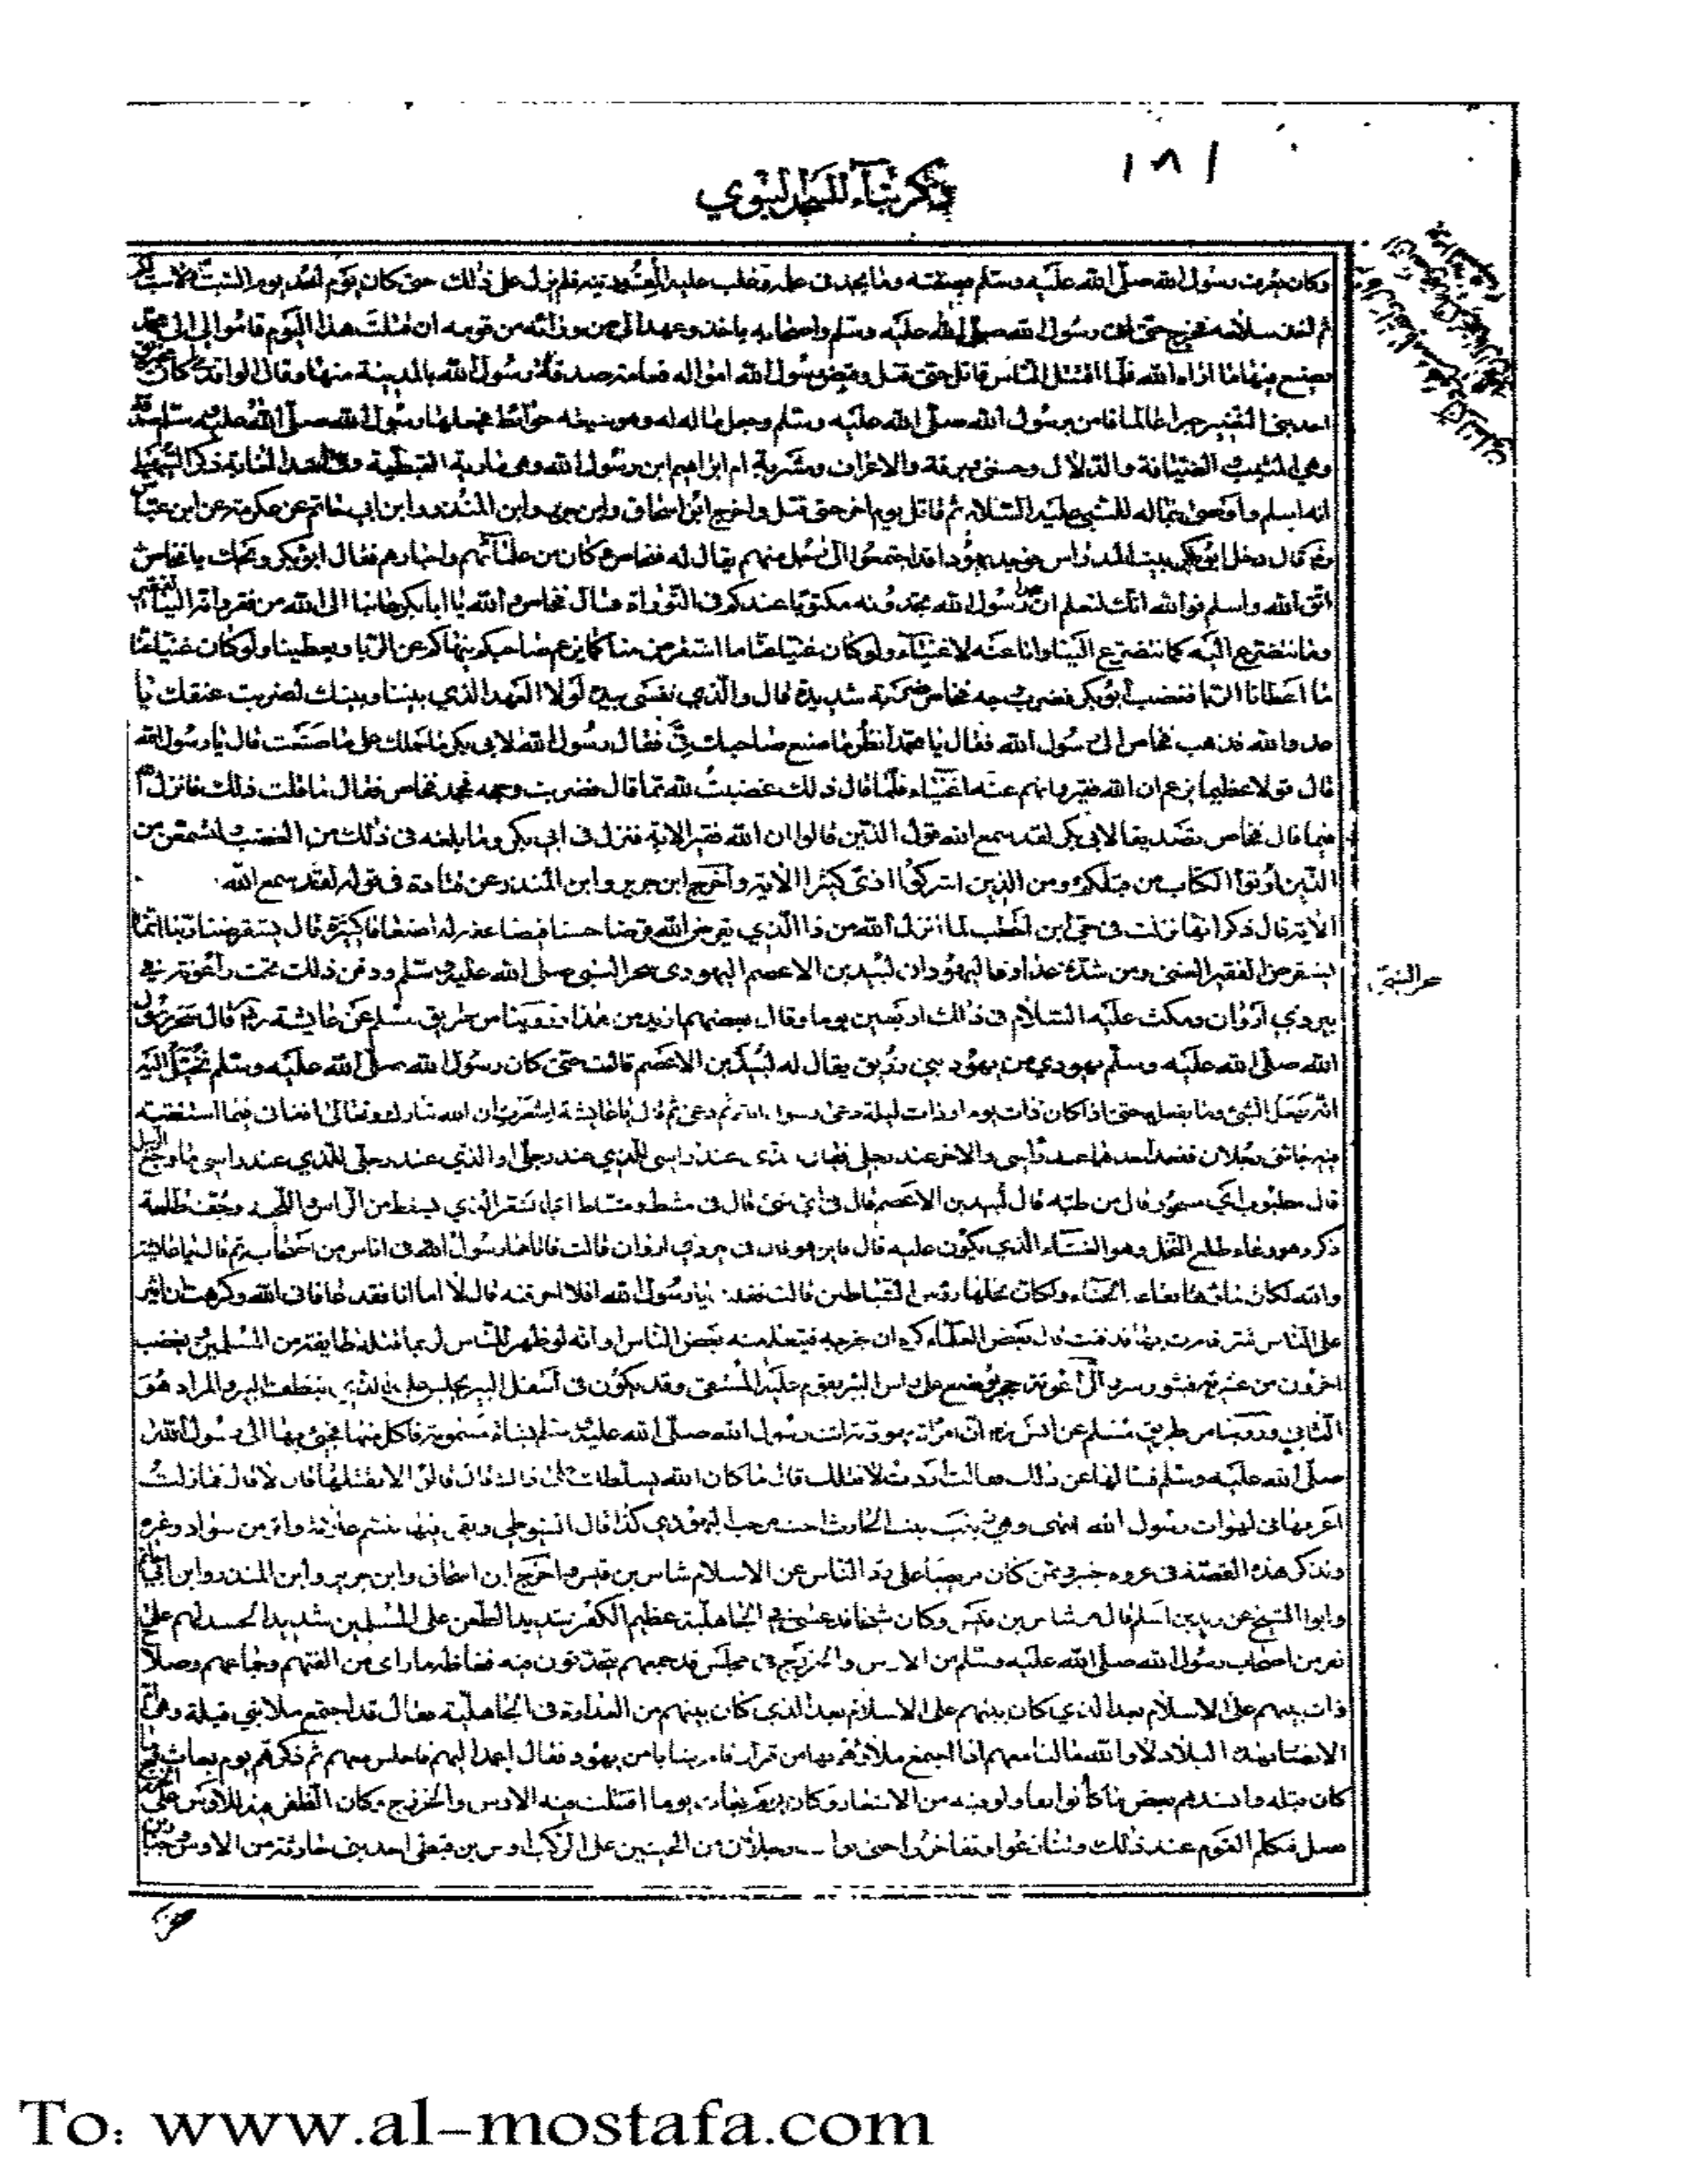 ١٨١
ذكر بناء المسجد النبوي
وكان يعرف رسول الله صلى الله عليه وسلم بصفته وما يجد في علمه وغلب عليه الف دينه فلم يزل على ذلك حتى كان يوم احد يوم السبت
ثم اخذ سلاحه فخرج حتى اتى رسول الله صلى الله عليه وسلم واصحابه باحد وعهد الى من ورائه من قومه ان قتلت هذا اليوم فاموالي الى محمد
يصنع فيها ما اراه الله فلما اقتتل الناس قاتل حتى قتل وقبض رسول الله امواله فعامة صدقات رسول الله بالمدينة منها وقال الواقدي كان
احد بني النضير حبرا عالما فامن برسول الله صلى الله عليه وسلم وجعل ماله له وهو سبعة حوائط فجعلها رسول الله صلى الله عليه وسلم صدقة
وهي الميثب الصافية والدلال وحسنى وبرقة والاعراف ومشربة ام ابراهيم ابن رسول الله وهي مارية القبطية
انه اسلم واوصى بماله للنبي عليه السلام ثم قاتل يوم احد حتى قتل واخرج ابن اسحاق وابن جرير وابن المنذر وابن ابي حاتم عن عكرمة عن ابن عباس
قال دخل ابو بكر بيت المدراس فوجد يهود قد اجتمعوا الى رجل منهم يقال له فنحاص وكان من علمائهم واحبارهم فقال ابو بكر ويحك يا فنحاص
اتق الله واسلم فوالله انك لتعلم ان محمدا رسول الله تجدونه مكتوبا عندكم في التوراة فقال فنحاص والله يا ابا بكر ما بنا الى الله من فقر وانه الينا لفقير
وما نتضرع اليه كما يتضرع الينا وانا عنه لاغنياء ولو كان غنيا عنا ما استقرض منا كما يزعم صاحبكم ينهاكم عن الربا ويعطينا ولو كان غنيا عنا
ما اعطانا الربا فغضب ابو بكر فضرب وجه فنحاص ضربة شديدة قال والذي نفسي بيده لولا العهد الذي بيننا وبينك لضربت عنقك يا
عدو الله فذهب فنحاص الى رسول الله فقال يا محمد انظر ما صنع صاحبك بي فقال رسول الله لابي بكر ما حملك على ما صنعت قال يا رسول الله
قال قولا عظيما يزعم ان الله فقير وانهم عنه اغنياء فلما قال ذلك غضبت لله مما قال فضربت وجهه فجحد فنحاص فقال ما قلت ذلك فانزل الله
فيما قال فنحاص تصديقا لابي بكر لقد سمع الله قول الذين قالوا ان الله فقير الاية فنزل في ابي بكر وما بلغه في ذلك من الغضب لتسمعن من
الذين اوتوا الكتاب من قبلكم ومن الذين اشركوا اذى كثيرا الاية واخرج ابن جرير وابن المنذر عن قتادة في قوله لقد سمع الله
الاية قال ذكر انها نزلت في حي ابن اخطب لما انزل الله من ذا الذي يقرض الله قرضا حسنا فيضاعفه له اضعافا كثيرة قال يستقرضنا ربنا انما
يستقرض الفقير الغني ومن شدة عداوة اليهود ان لبيد بن الاعصم اليهودي سحر النبي صلى الله عليه وسلم ودفن ذلك تحت راعوفة في
بير ذي اروان ومكث عليه السلام في ذلك اربعين يوما وقال بعضهم ازيد من هذا وروينا من طريق مسلم عن عايشة قال سحر رسول
الله صلى الله عليه وسلم يهودي من يهود بني زريق يقال له لبيد بن الاعصم قالت حتى كان رسول الله صلى الله عليه وسلم يخيل اليه
انه يفعل الشئ وما يفعله حتى اذا كان ذات يوم او ذات ليلة دعى رسول الله ثم دعى ثم قال يا عايشة اشعرت ان الله تبارك وتعالى افتاني فيما استفتيته
فيه جائني رجلان فقعد احدهما عند راسي والاخر عند رجلي فقال الذي عند راسي للذي عند رجلي او الذي عند رجلي للذي عند راسي ما وجع الرجل
قال مطبوب اي مسحور قال من طبه قال لبيد بن الاعصم قال في اي شئ قال في مشط ومشاطة اي الشعر الذي يسقط من الراس واللحية وجف طلعة
ذكر وهو وعاء طلع النخل وهو الغشاء الذي يكون عليه قال فاين هو قال في بير ذي اروان قالت فاتاها رسول الله في اناس من اصحابه ثم قال يا عايشة
والله لكان ماءها نقاعة الحناء ولكان نخلها رؤس الشياطين قالت فقلت يا رسول الله افلا احرقته قال لا اما انا فقد عافاني الله وكرهت ان اثير
على الناس شرا فامرت بها فدفنت قال بعض العلماء كره ان اخرجه فيتعلم منه بعض الناس او انه لو ظهر للناس لربما قتله طايفة من المسلمين يغضب
اخرون من عشيرته فيثور شر الراعوفة حجر يوضع على راس البئر يقوم عليه المستقي وقد يكون في اسفل البير يجلس عليه الذي ينظف البير والمراد هو
الثاني وروينا من طريق مسلم عن انس ان امراة يهودية اتت رسول الله صلى الله عليه وسلم بشاة مسمومة فاكل منها فجئ بها الى رسول الله
صلى الله عليه وسلم فسالها عن ذلك فقالت اردت لاقتلك قال ما كان الله ليسلطك على ذلك قال قالوا الا نقتلها قال لا قال فما زلت
اعرفها في لهوات رسول الله انتهى وهي زينب بنت الحارث اخت مرحب اليهودي كذا قال السيوطي
ونذكر هذه القصة في غزوة خيبر وممن كان حريصا على رد الناس عن الاسلام شاس بن قيس اخرج ابن اسحاق وابن جرير وابن المنذر وابن ابي حاتم
وابو الشيخ عن زيد بن اسلم قال مر شاس بن قيس وكان شيخا قد عسى في الجاهلية عظيم الكفر شديد الطعن على المسلمين شديد الحسد لهم على
نفر من اصحاب رسول الله صلى الله عليه وسلم من الاوس والخزرج في مجلس قد جمعهم يتحدثون فيه فغاظه ما راى من الفتهم وجماعتهم وصلاح
ذات بينهم على الاسلام بعد الذي كان بينهم من العداوة في الجاهلية فقال قد اجتمع ملا بني قيلة
البلاد لا والله ما لنا معهم اذا اجتمع ملائهم بها من قرار فامر شابا من يهود فقال اعمد اليهم فاجلس معهم ثم ذكرهم يوم بعاث وما
كان قبله وانشدهم بعض ما كانوا تقاولوا فيه من الاشعار وكان يوم بعاث يوما اقتتلت فيه الاوس والخزرج وكان الظفر فيه للاوس على الخزرج
ففعل فتكلم القوم عند ذلك وتنازعوا وتفاخروا حتى رجلان من الحيين على الركب اوس بن قيظي احد بني حارثة من الاوس
سحر النبي
To: www.al-mostafa.com